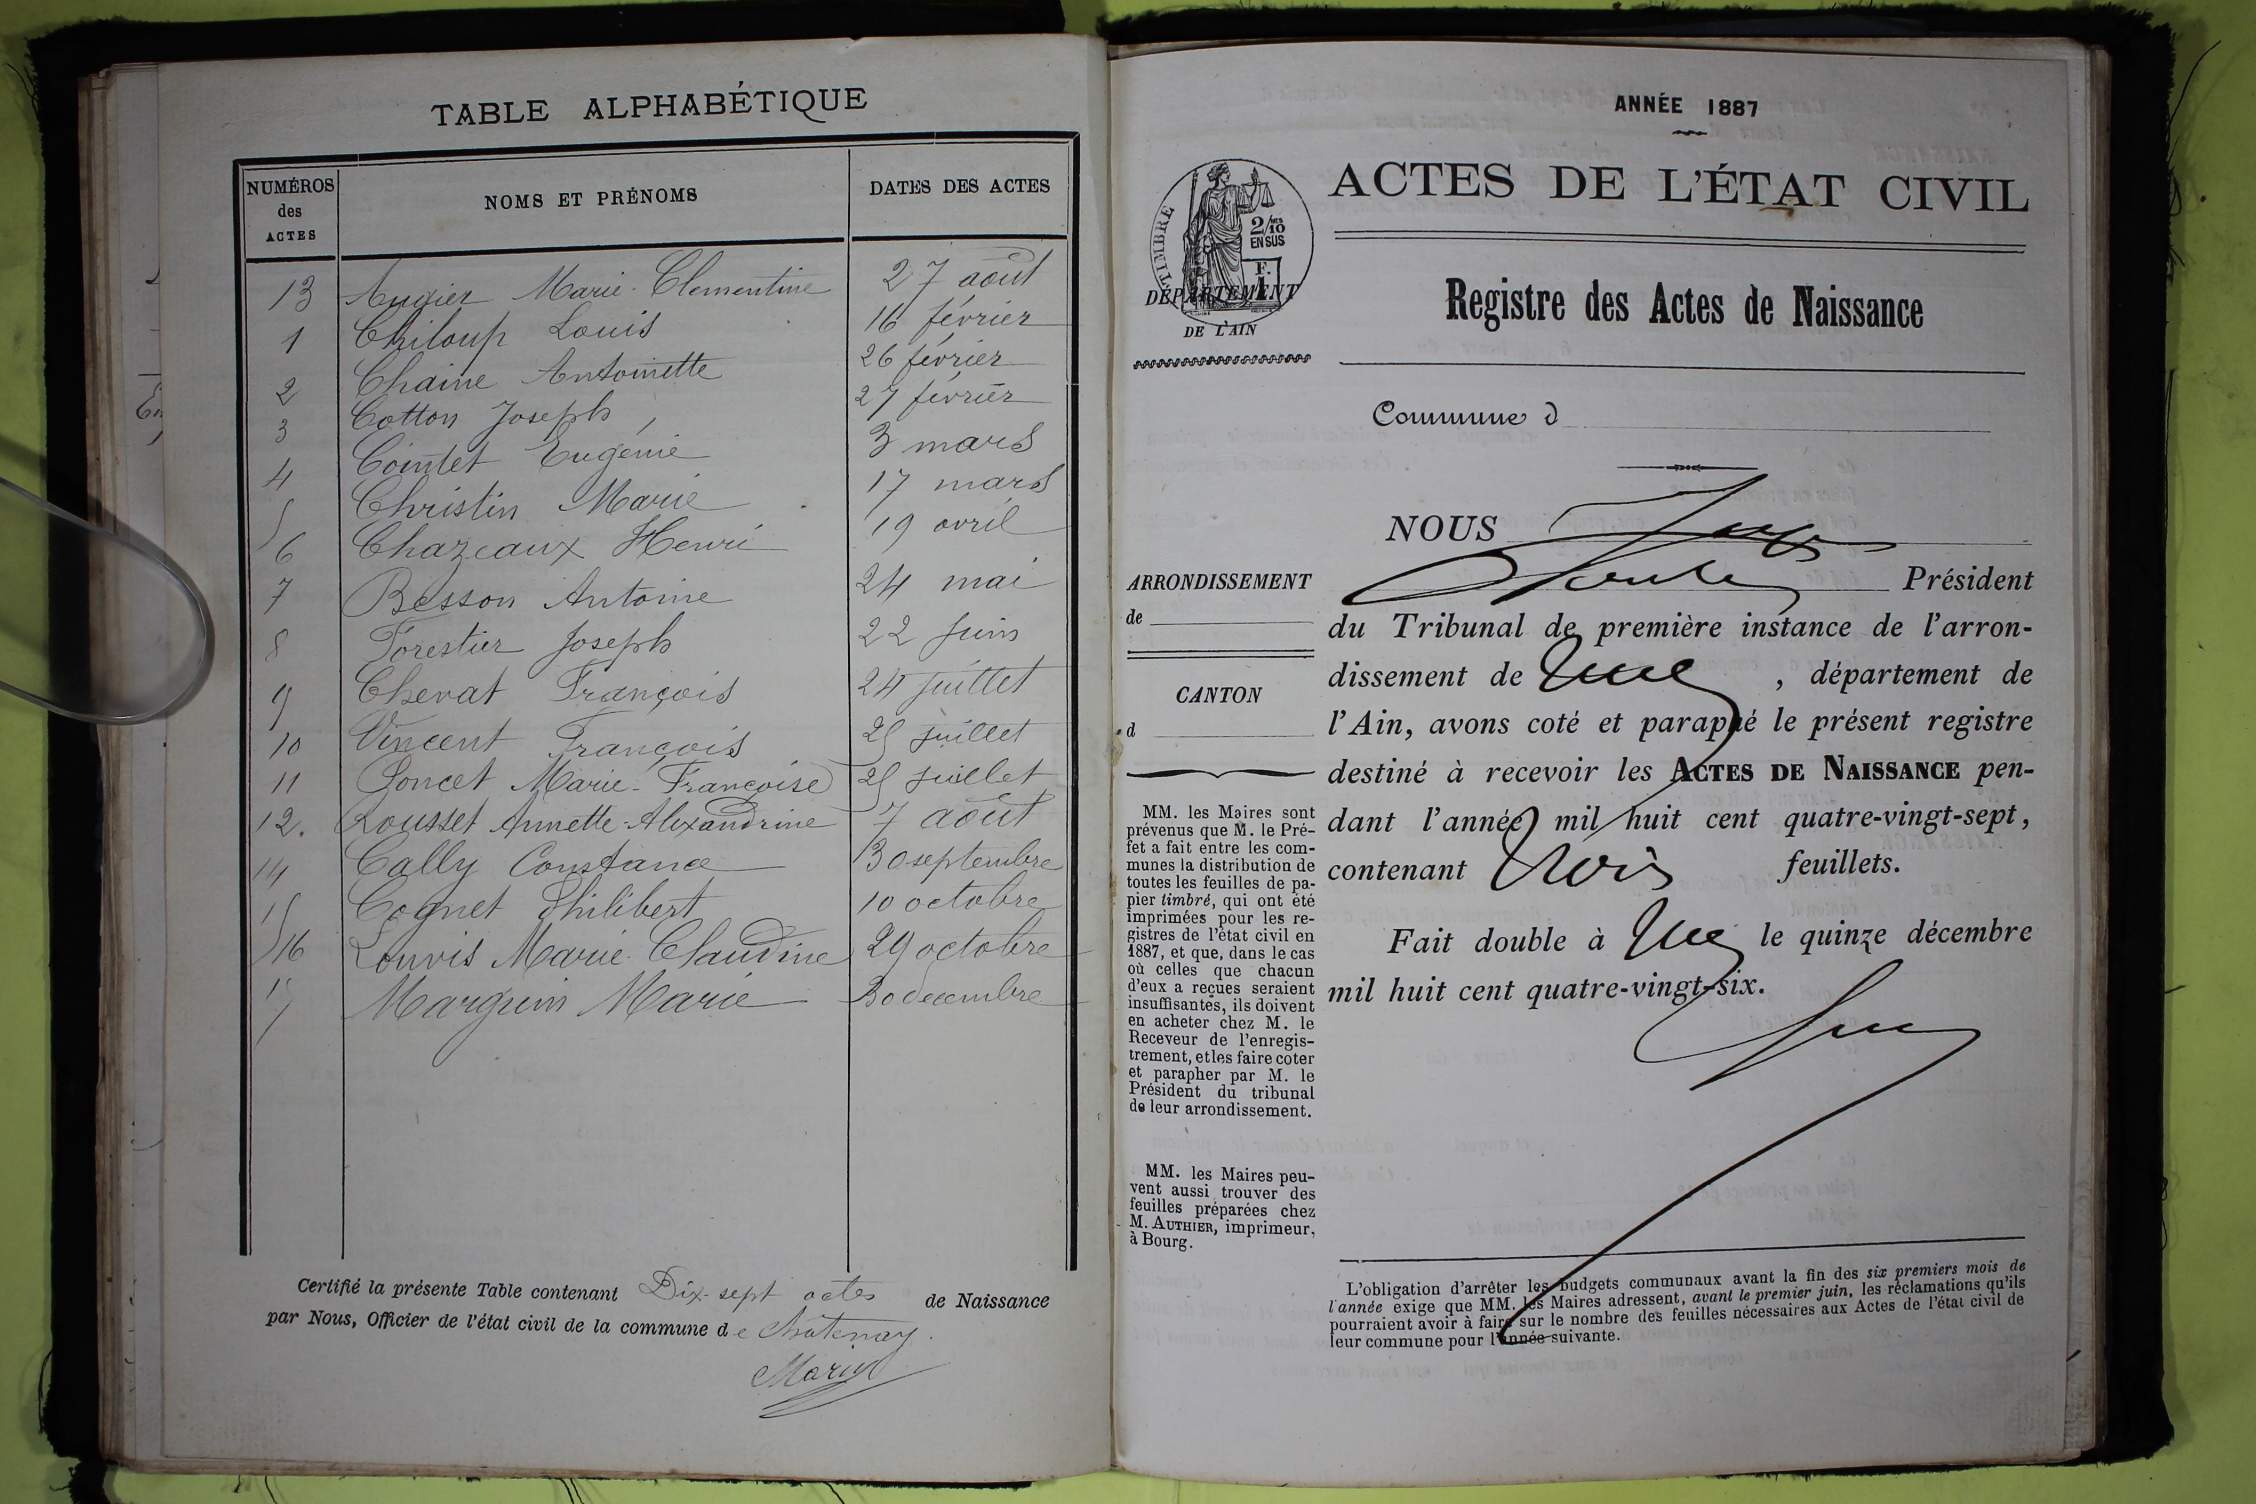 TABLE ALPHABÉTIQUE
NUMÉROS des ACTES
NOMS ET PRÉNOMS
DATES DES ACTES
13 Augier Marie-Clementine 27 août
1 Chiloup Louis 16 février
2 Chaine Antoinette 26 février
3 Cotton Joseph 27 février
4 Cointet Eugénie 3 mars
5 Christin Marie 17 mars
6 Chazeaux Henri 19 avril
7 Besson Antoine 24 mai
8 Forestier Joseph 22 juin
9 Chevat François 24 juillet
10 Vincent François 25 juillet
11 Poncet Marie-Françoise 25 juillet
12. Rousset Annette-Alexandrine 7 août
14 Cally Constance 30 septembre
15 Cognet Philibert 10 octobre
16 Louvis Marie-Claudine 29 octobre
17 Marguin Marie 30 decembre
Certifié la présente Table contenant Dix-sept actes de Naissance
par Nous, Officier de l'état civil de la commune de Châtenay.
Marin
ANNÉE 1887
ACTES DE L'ÉTAT CIVIL
TIMBRE
2/10
EN SUS
F.
1
DÉPARTEMENT
DE L'AIN
Registre des Actes de Naissance
Commune d
NOUS
ARRONDISSEMENT
de
CANTON
d
MM. les Maires sont
prévenus que M. le Pré-
fet a fait entre les com-
munes la distribution de
toutes les feuilles de pa-
pier timbré, qui ont été
imprimées pour les re-
gistres de l'état civil en
1887, et que, dans le cas
où celles que chacun
d'eux a reçues seraient
insuffisantes, ils doivent
en acheter chez M. le
Receveur de l'enregis-
trement, et les faire coter
et parapher par M. le
Président du tribunal
de leur arrondissement.
MM. les Maires peu-
vent aussi trouver des
feuilles préparées chez
M. AUTHIER, imprimeur,
à Bourg.
Président
du Tribunal de première instance de l'arron-
dissement de , département de
l'Ain, avons coté et paraphé le présent registre
destiné à recevoir les ACTES DE NAISSANCE pen-
dant l'année mil huit cent quatre-vingt-sept,
contenant trois feuillets.
Fait double à le quinze décembre
mil huit cent quatre-vingt-six.
L'obligation d'arrêter les budgets communaux avant la fin des six premiers mois de
l'année exige que MM. les Maires adressent, avant le premier juin, les réclamations qu'ils
pourraient avoir à faire sur le nombre des feuilles nécessaires aux Actes de l'état civil de
leur commune pour l'année suivante.